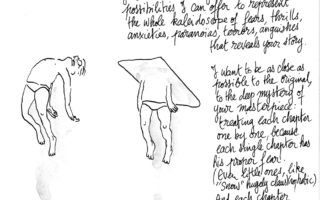 possibilities I can offer to represent
the whole kaleidoscope of fears, thrills,
anxieties, paranoias, terrors, anguishes
that reveals your story.
I want to be as close as
possible to the original,
to the deep mystery of
your masterpiece:
treating each chapter
one by one, because
each single chapter has
his proper fear.
(Even little ones, like
"Snow" hugely claustrophobic)
And each chapter